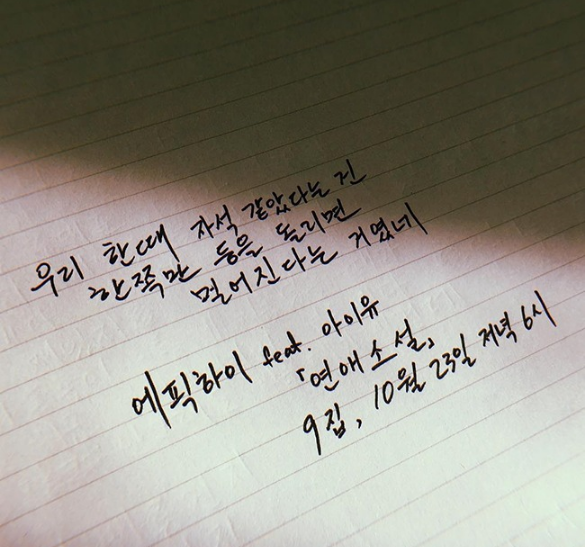 우리 한때 자석 같았다는 건
한쪽만 등을 돌리면
멀어진다는 거였네
에픽하이 feat. 아이유
「연애소설」
9집, 10월 23일 저녁 6시